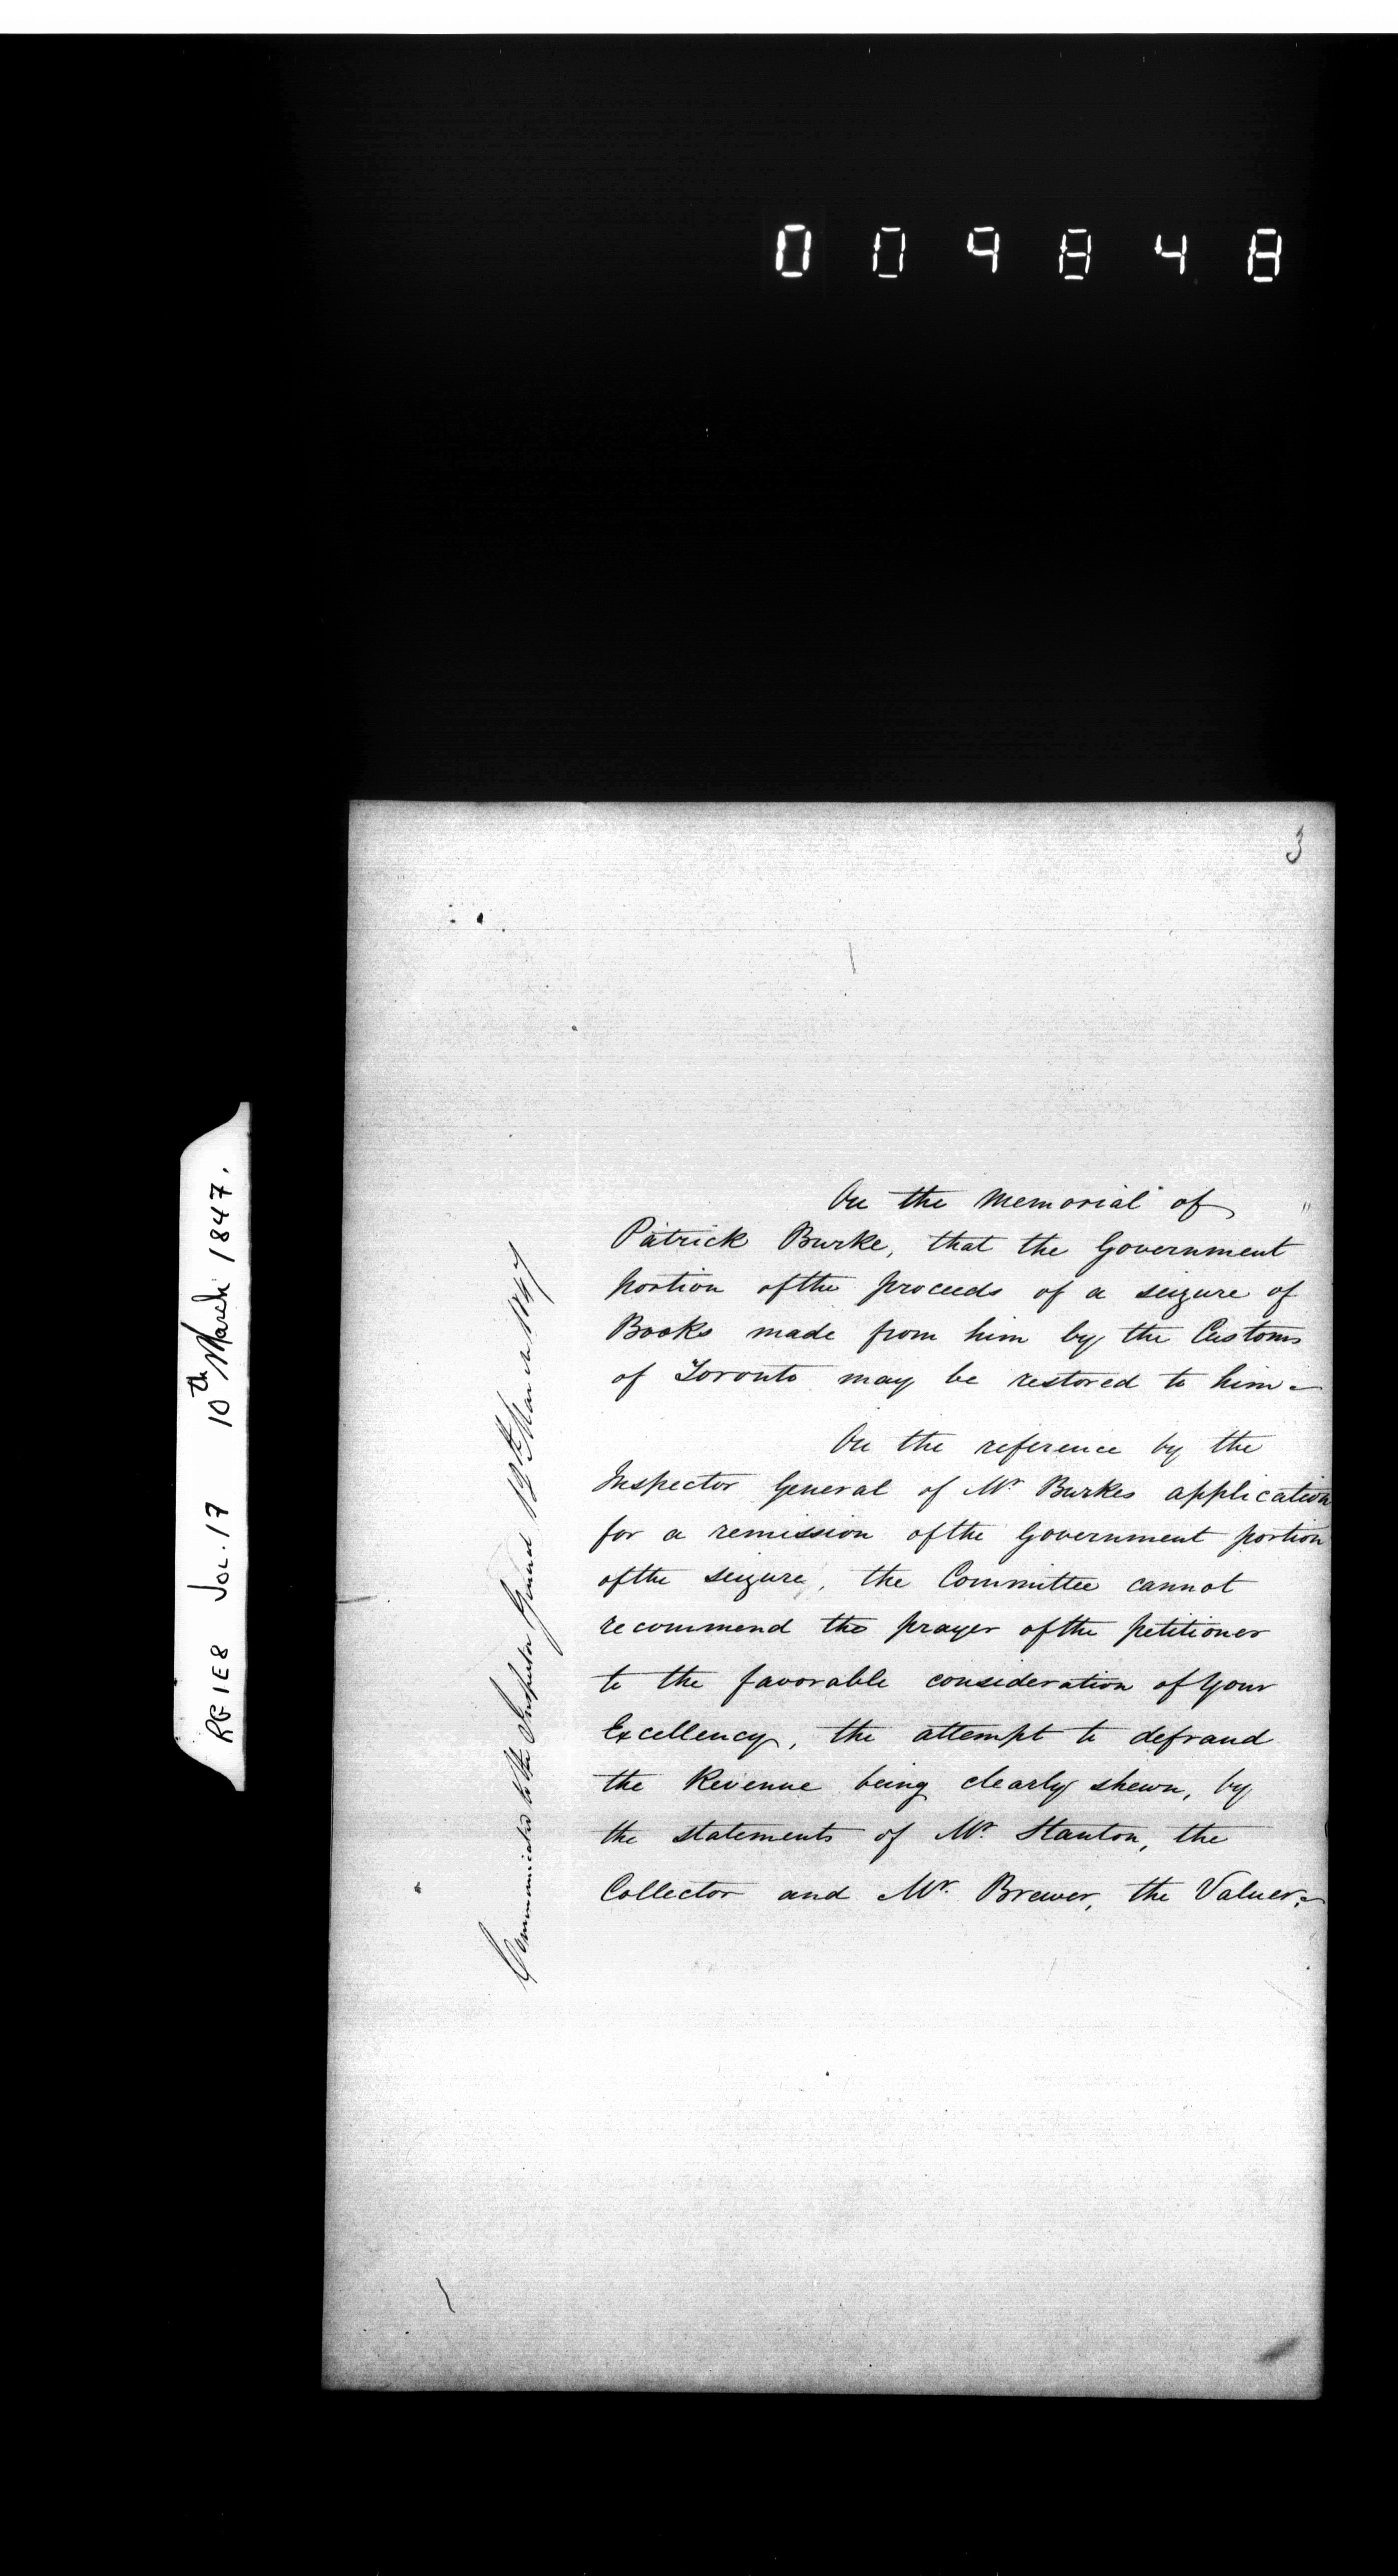 009848
3
RG1E8 Vol. 17 10th March 1847.
Communicated to the Inspector General March 1847
On the Memorial of
Patrick Burke, that the Government
portion of the proceeds of a seizure of
Books made from him by the Customs
of Toronto may be restored to him -
On the reference by the
Inspector General of Mr Burkes application
for a remission of the Government portion
of the seizure, the Committee cannot
recommend the prayer of the petitioner
to the favorable consideration of Your
Excellency, the attempt to defraud
the Revenue being clearly shewn, by
the statements of Mr. Stanton, the
Collector and Mr. Brewer, the Valuer.-